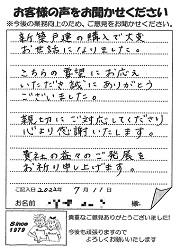 お客様の声をお聞かせください
※今後の業務向上のため、ご意見をお聞かせください。
新築戸建の購入で大変
お世話になりました。
こちらの要望にお応え
いただき誠にありがとう
ございました。
親切にご対応してくださり
心より感謝いたします。
貴社の益々のご発展を
お祈り申し上げます。
ご記入日 2022年 7月 11日
お名前
Since
1979
貴重なご意見ありがとうございました!
今後も頑張りますので
よろしくお願いいたします